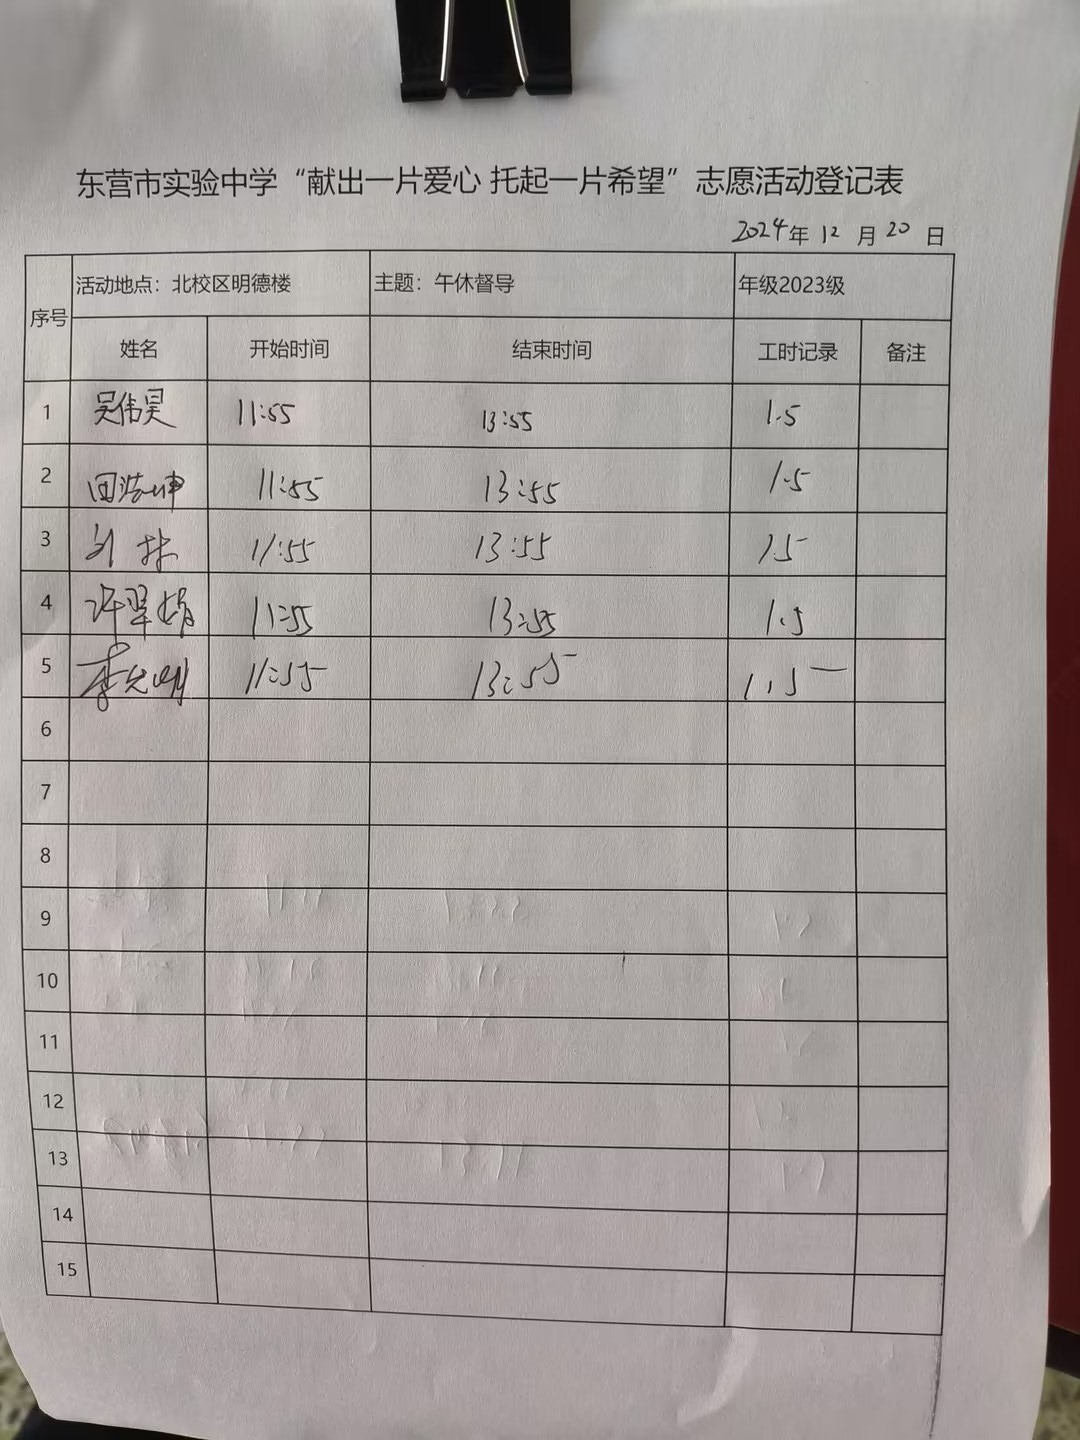 东营市实验中学“献出一片爱心 托起一片希望”志愿活动登记表
2024年 12 月 20 日
序号 活动地点：北校区明德楼 主题：午休督导 年级2023级
姓名 开始时间 结束时间 工时记录 备注
1 吴伟昊 11:55 13:55 1.5
2 田浩坤 11:55 13:55 1.5
3 刘林 11:55 13:55 1.5
4 许翠娟 11:55 13:55 1.5
5 李光明 11:55 13:55 1.5
6
7
8
9
10
11
12
13
14
15